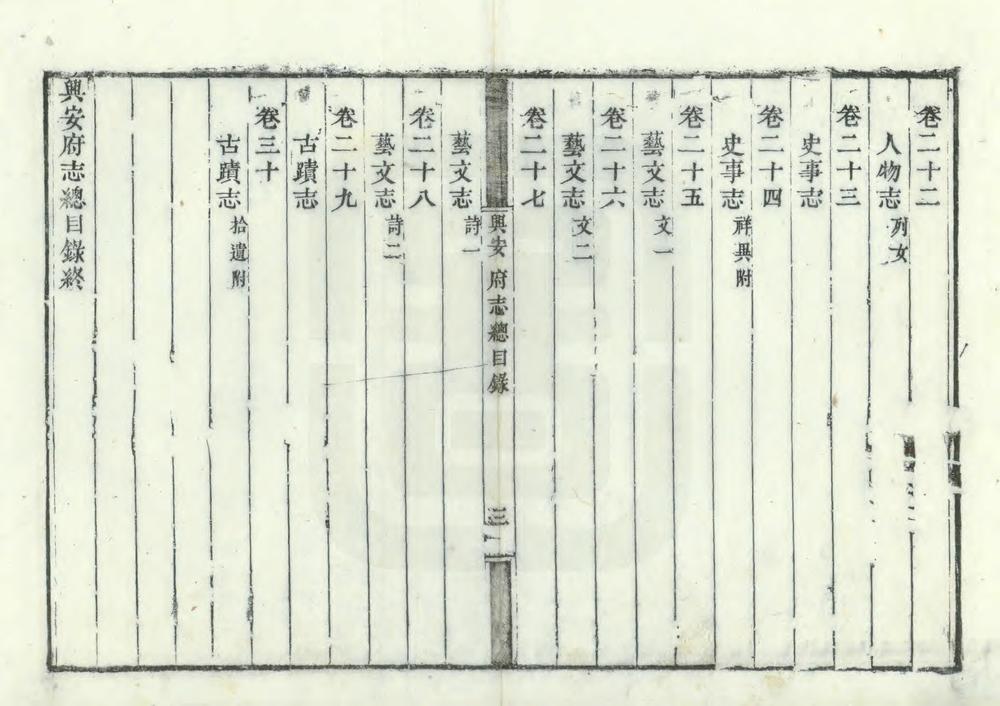 卷二十二
人物志 列女
卷二十三
史事志
卷二十四
史事志 祥異附
卷二十五
藝文志 文一
卷二十六
藝文志 文二
卷二十七
興安府志總目錄 三
藝文志 詩一
卷二十八
藝文志 詩二
卷二十九
古蹟志
卷三十
古蹟志 拾遺附
興安府志總目錄終